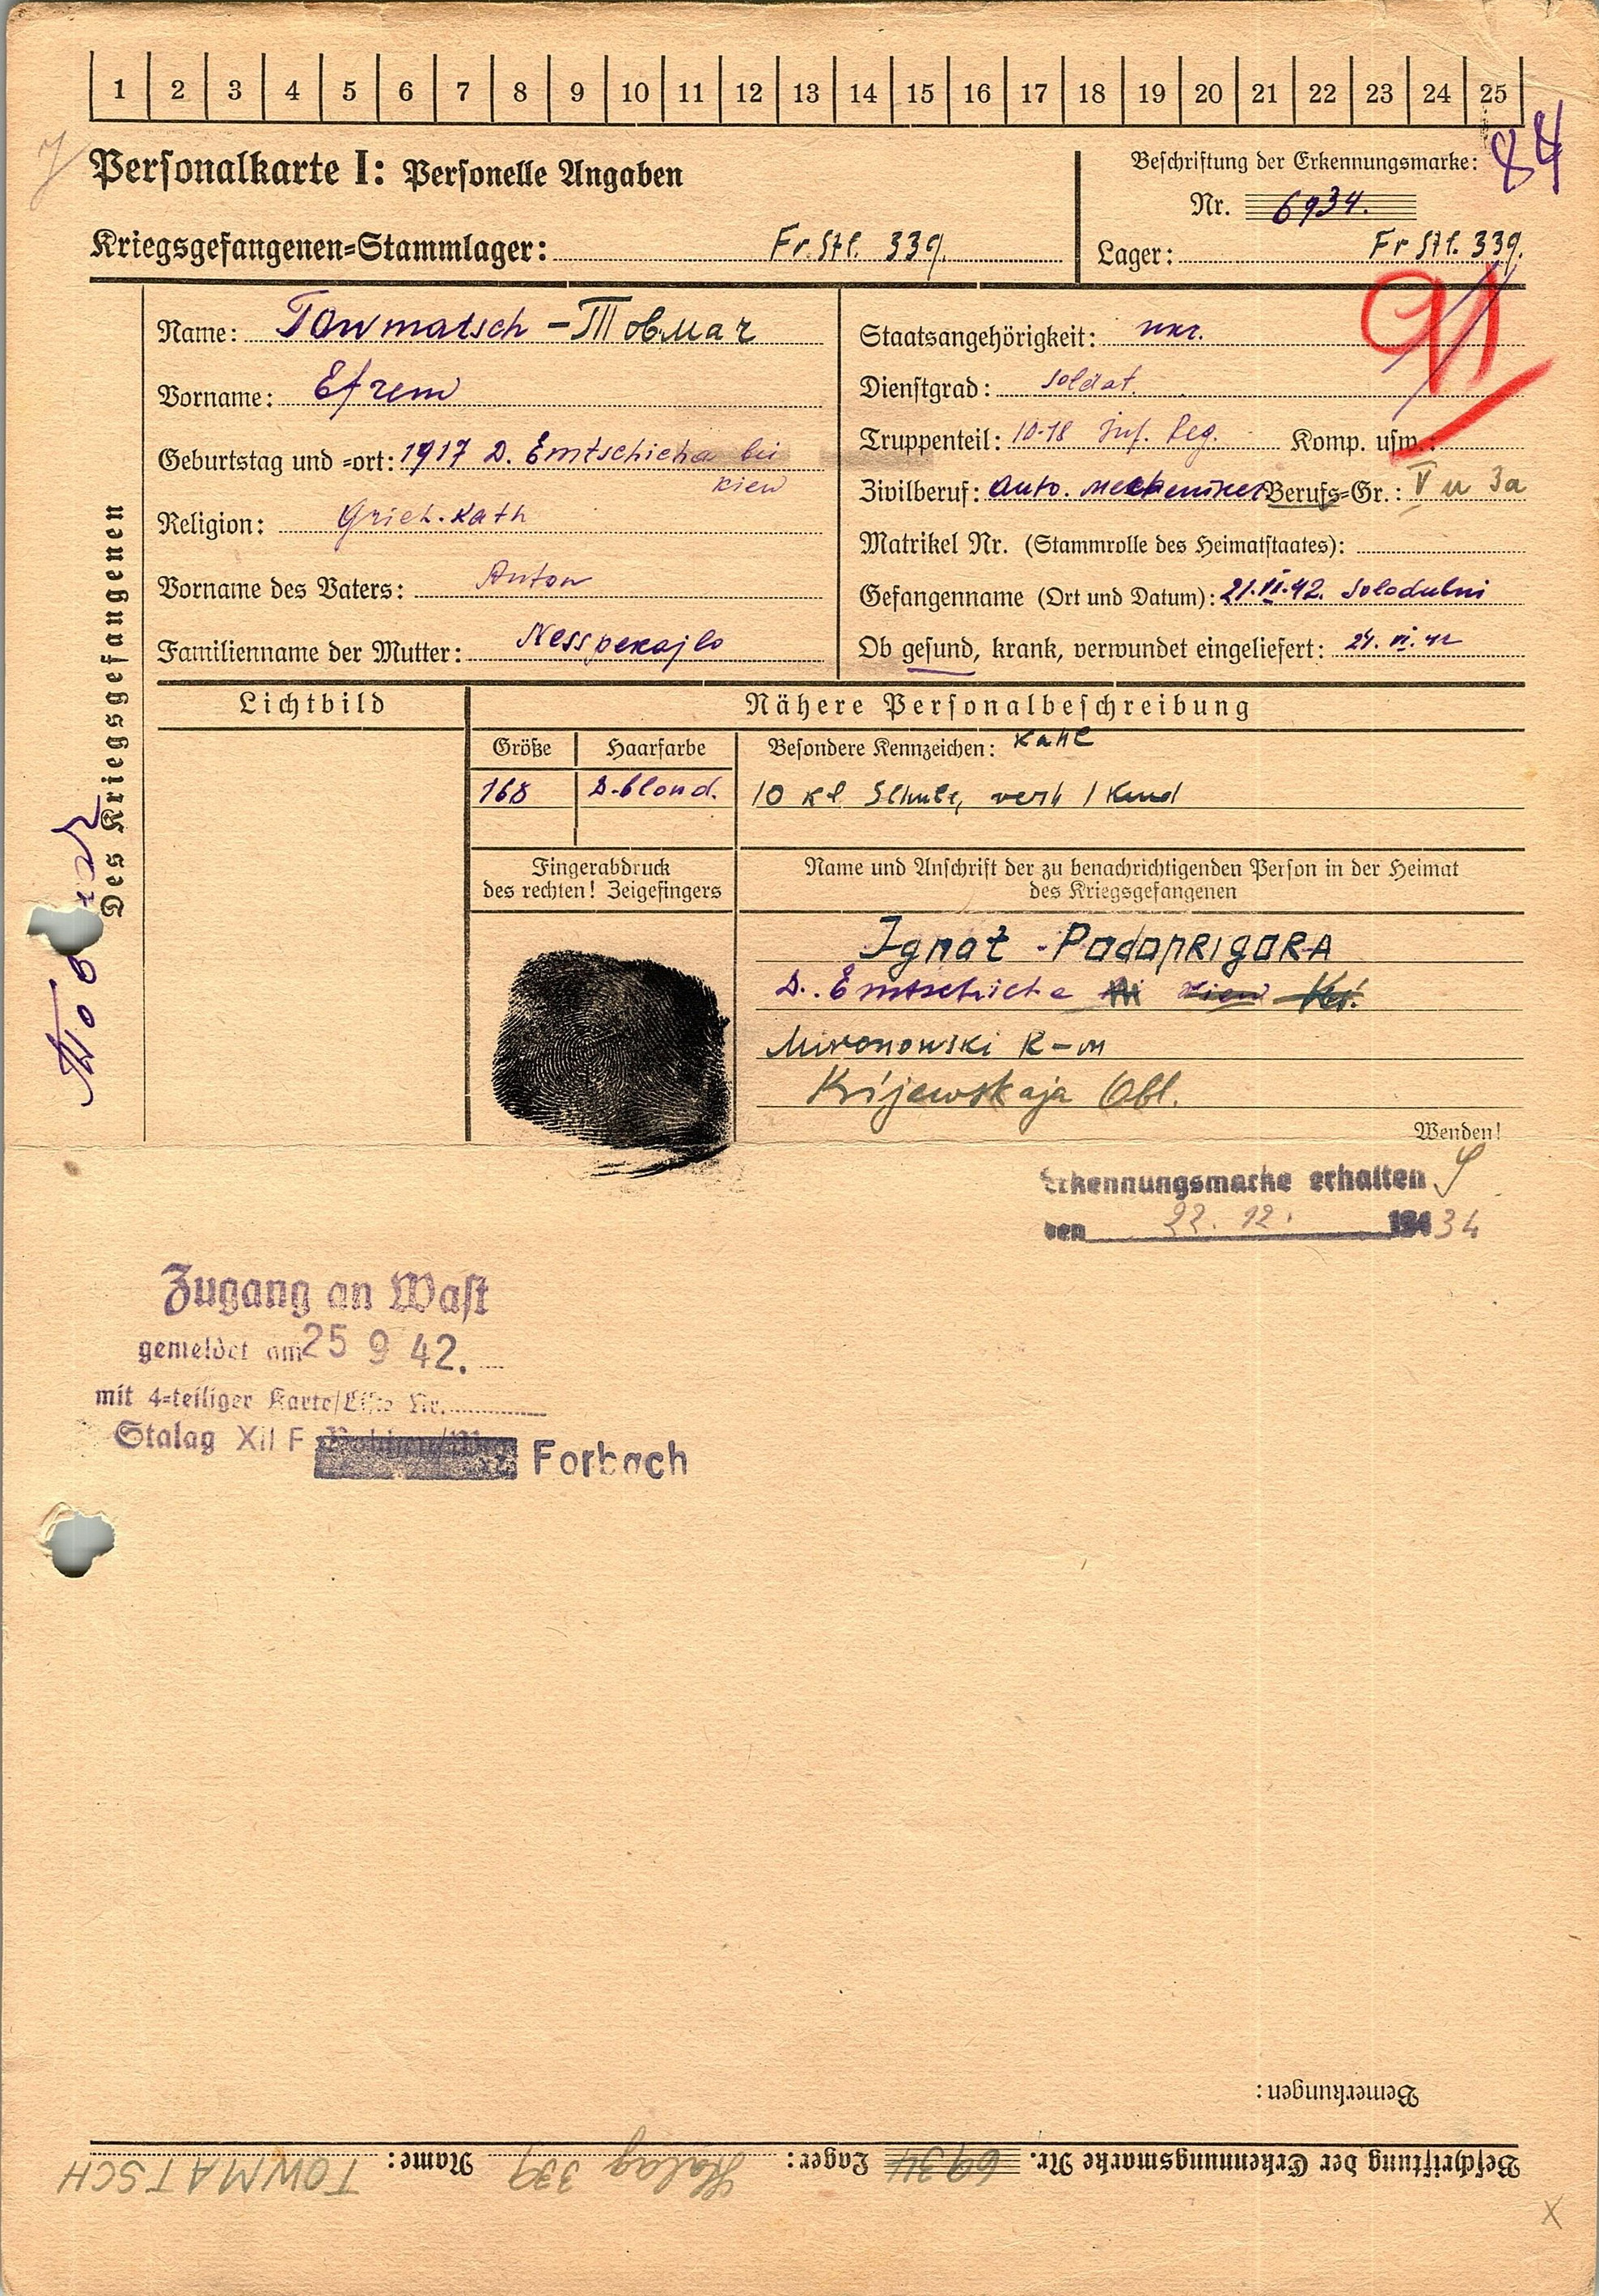 1 2 3 4 5 6 7 8 9 10 11 12 13 14 15 16 17 18 19 20 21 22 23 24 25
84
Personalkarte I: Personelle Angaben
Beschriftung der Erkennungsmarke:
Nr. 6934.
Kriegsgefangenen=Stammlager: Fr. Stl. 339.
Lager: Fr Stl. 339.
91
Des Kriegsgefangenen
Name: Towmatsch - Товмач
Vorname: Efrem
Geburtstag und =ort: 1917 D. Emtschicha bei
Kiew
Religion: Griech. Kath
Vorname des Vaters: Anton
Familienname der Mutter:
Staatsangehörigkeit: ukr.
Dienstgrad: Soldat.
Truppenteil: 10-18 Inf. Reg. Komp. usw.:
Zivilberuf: Auto. Mechaniker Berufs=Gr.: V u 3a
Matrikel Nr. (Stammrolle des Heimatstaates):
Gefangenname (Ort und Datum): 21.VI.42. Solodubni
Ob gesund, krank, verwundet eingeliefert: 24. VI. 42
Lichtbild
Nähere Personalbeschreibung
Größe
Haarfarbe
Besondere Kennzeichen:
168
D-blond.
10 Kl. Schule, verh 1 Kind
Fingerabdruck
des rechten! Zeigefingers
Name und Anschrift der zu benachrichtigenden Person in der Heimat
des Kriegsgefangenen
Ignat Podoprigora
D. Emtschicha
Mironowski R-n
Kijewskaja Obl.
Wenden!
Erkennungsmarke erhalten
den 22. 12. 194
Zugang an Wast
gemeldet am 25 9 42.
mit 4=teiliger Karte/Liste Nr.
Stalag XII F Forbach
Bemerkungen:
Beschriftung der Erkennungsmarke Nr. 6934 Lager: Stalag 339 Name: TOWMATSCH
X